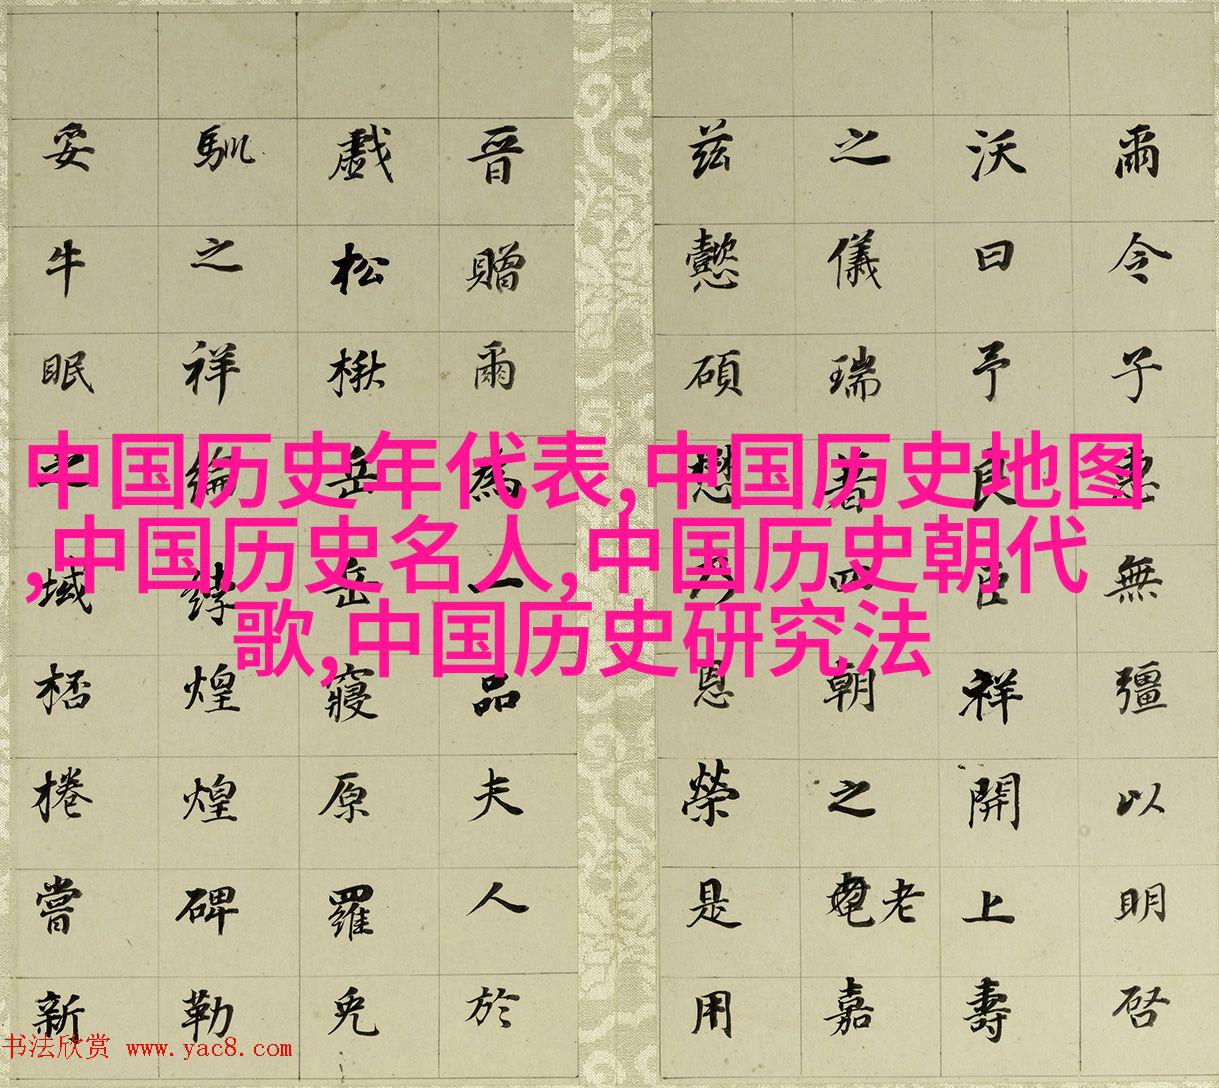 爾令子惠無彊以明啓
沃曰予良臣祥開上壽
之儀瑞者四朝之老嘉
茲懿碩懋乃恩榮是用
晉贈爾為一品夫人於
戲松楸岳岳寢原羅兕
馴之祥綸綍煌煌碑勒
妥牛眠之域桮棬嘗新
中国历史年代表,中国历史地图
,中国历史名人,中国历史朝代
歌,中国历史研究法
书法欣赏 www.yac8.com